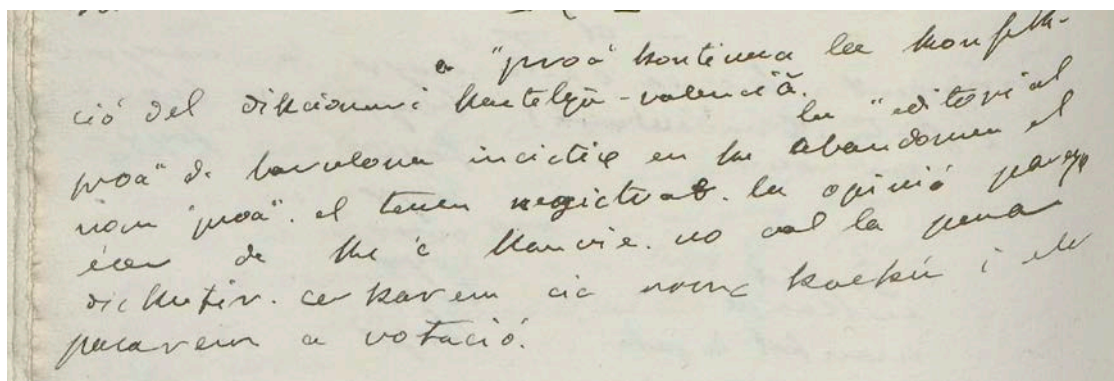 a "proa" kontinua la konfek-
ció del dikcionari kactelyà-valencià.
la "editorial
proa" de barcelona incictix en ke abandonem el
nom "proa". el tenen regictrat. la opinió pareix
écer de ke c kanvie. no val la pena
dickutir. cerkarem cic nomc kackú i elc
pacarem a votació.